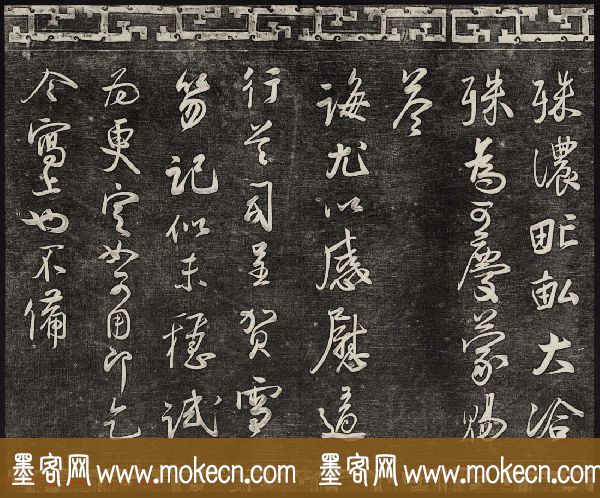 殊濃甿畝大洽
殊為可慶蒙賜
答
誨尤以感慰適
行首司呈賀雪
笏記似未穩試
為更定如可用即乞
令寫上也不備
墨客网 www.mokecn.com 墨客网 www.mokecn.com